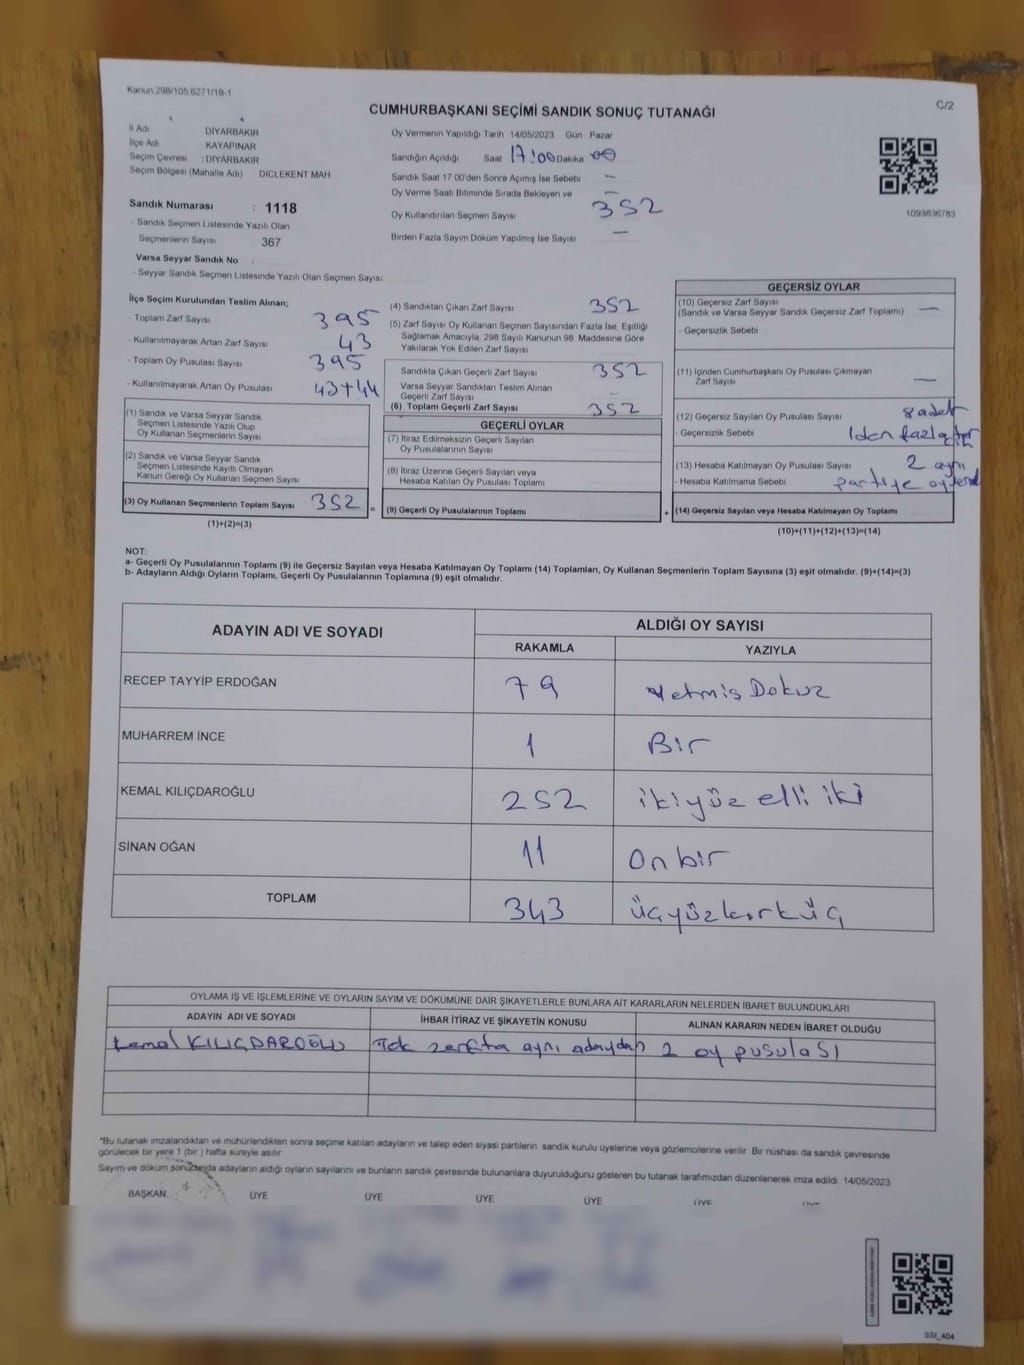 Kanun:298/105,6271/18-1
C/2
CUMHURBAŞKANI SEÇİMİ SANDIK SONUÇ TUTANAĞI
İl Adı DİYARBAKIR
İlçe Adı KAYAPINAR
Seçim Çevresi : DİYARBAKIR
Seçim Bölgesi (Mahalle Adı) DICLEKENT MAH.
Sandık Numarası : 1118
- Sandık Seçmen Listesinde Yazılı Olan
Seçmenlerin Sayısı : 367
Varsa Seyyar Sandık No :
- Seyyar Sandık Seçmen Listesinde Yazılı Olan Seçmen Sayısı
Oy Vermenin Yapıldığı Tarih 14/05/2023 Gün Pazar
Sandığın Açıldığı Saat 17:00 Dakika 00
Sandık Saat 17.00'den Sonra Açımış İse Sebebi —
Oy Verme Saati Bitiminde Sırada Bekleyen ve —
Oy Kullandırılan Seçmen Sayısı 352
Birden Fazla Sayım Döküm Yapılmış İse Sayısı —
1093836783
İlçe Seçim Kurulundan Teslim Alınan;
- Toplam Zarf Sayısı 395
- Kullanılmayarak Artan Zarf Sayısı 43
- Toplam Oy Pusulası Sayısı 395
- Kullanılmayarak Artan Oy Pusulası 43+44
(1) Sandık ve Varsa Seyyar Sandık
Seçmen Listesinde Yazılı Olup
Oy Kullanan Seçmenlerin Sayısı
(2) Sandık ve Varsa Seyyar Sandık
Seçmen Listesinde Kayıtlı Olmayan
Kanun Gereği Oy Kullanan Seçmen Sayısı
(3) Oy Kullanan Seçmenlerin Toplam Sayısı 352 =
(1)+(2)=(3)
(4) Sandıktan Çıkan Zarf Sayısı 352
(5) Zarf Sayısı Oy Kullanan Seçmen Sayısından Fazla İse, Eşitliği
Sağlamak Amacıyla, 298 Sayılı Kanunun 98. Maddesine Göre
Yakılarak Yok Edilen Zarf Sayısı
Sandıkta Çıkan Geçerli Zarf Sayısı 352
Varsa Seyyar Sandıktan Teslim Alınan
Geçerli Zarf Sayısı —
(6) Toplam Geçerli Zarf Sayısı 352
GEÇERLİ OYLAR
(7) İtiraz Edilmeksizin Geçerli Sayılan
Oy Pusulalarının Sayısı
(8) İtiraz Üzerine Geçerli Sayılan veya
Hesaba Katılan Oy Pusulası Toplamı
(9) Geçerli Oy Pusulalarının Toplamı +
GEÇERSİZ OYLAR
(10) Geçersiz Zarf Sayısı
(Sandık ve Varsa Seyyar Sandık Geçersiz Zarf Toplamı) —
- Geçersizlik Sebebi
(11) İçinden Cumhurbaşkanı Oy Pusulası Çıkmayan
Zarf Sayısı —
(12) Geçersiz Sayılan Oy Pusulası Sayısı 8 adet
- Geçersizlik Sebebi 1den fazla
(13) Hesaba Katılmayan Oy Pusulası Sayısı 2 aynı
- Hesaba Katılmama Sebebi partiye oy
(14) Geçersiz Sayılan veya Hesaba Katılmayan Oy Toplamı
(10)+(11)+(12)+(13)=(14)
NOT:
a- Geçerli Oy Pusulalarının Toplamı (9) ile Geçersiz Sayılan veya Hesaba Katılmayan Oy Toplamı (14) Toplamları, Oy Kullanan Seçmenlerin Toplam Sayısına (3) eşit olmalıdır. (9)+(14)=(3)
b- Adayların Aldığı Oyların Toplamı, Geçerli Oy Pusulalarının Toplamına (9) eşit olmalıdır.
ADAYIN ADI VE SOYADI
ALDIĞI OY SAYISI
RAKAMLA YAZIYLA
RECEP TAYYİP ERDOĞAN 79 Yetmiş Dokuz
MUHARREM İNCE 1 Bir
KEMAL KILIÇDAROĞLU 252 ikiyüz elli iki
SİNAN OĞAN 11 On bir
TOPLAM 343 üçyüzkırküç
OYLAMA İŞ VE İŞLEMLERİNE VE OYLARIN SAYIM VE DÖKÜMÜNE DAİR ŞİKAYETLERLE BUNLARA AİT KARARLARIN NELERDEN İBARET BULUNDUKLARI
ADAYIN ADI VE SOYADI İHBAR İTİRAZ VE ŞİKAYETİN KONUSU ALINAN KARARIN NEDEN İBARET OLDUĞU
Kemal KILIÇDAROĞLU Tek zarfta aynı adaydan 2 oy pusulası
*Bu tutanak imzalandıktan ve mühürlendikten sonra seçime katılan adayların ve talep eden siyasi partilerin sandık kurulu üyelerine veya gözlemcilerine verilir. Bir nüshası da sandık çevresinde
görülecek bir yere 1 (bir ) hafta süreyle asılır
Sayım ve döküm sonucunda adayların aldığı oyların sayılarını ve bunların sandık çevresinde bulunanlara duyurulduğunu gösteren bu tutanak tarafımızdan düzenlenerek imza edildi. 14/05/2023
BAŞKAN ÜYE ÜYE ÜYE ÜYE
SSI_404